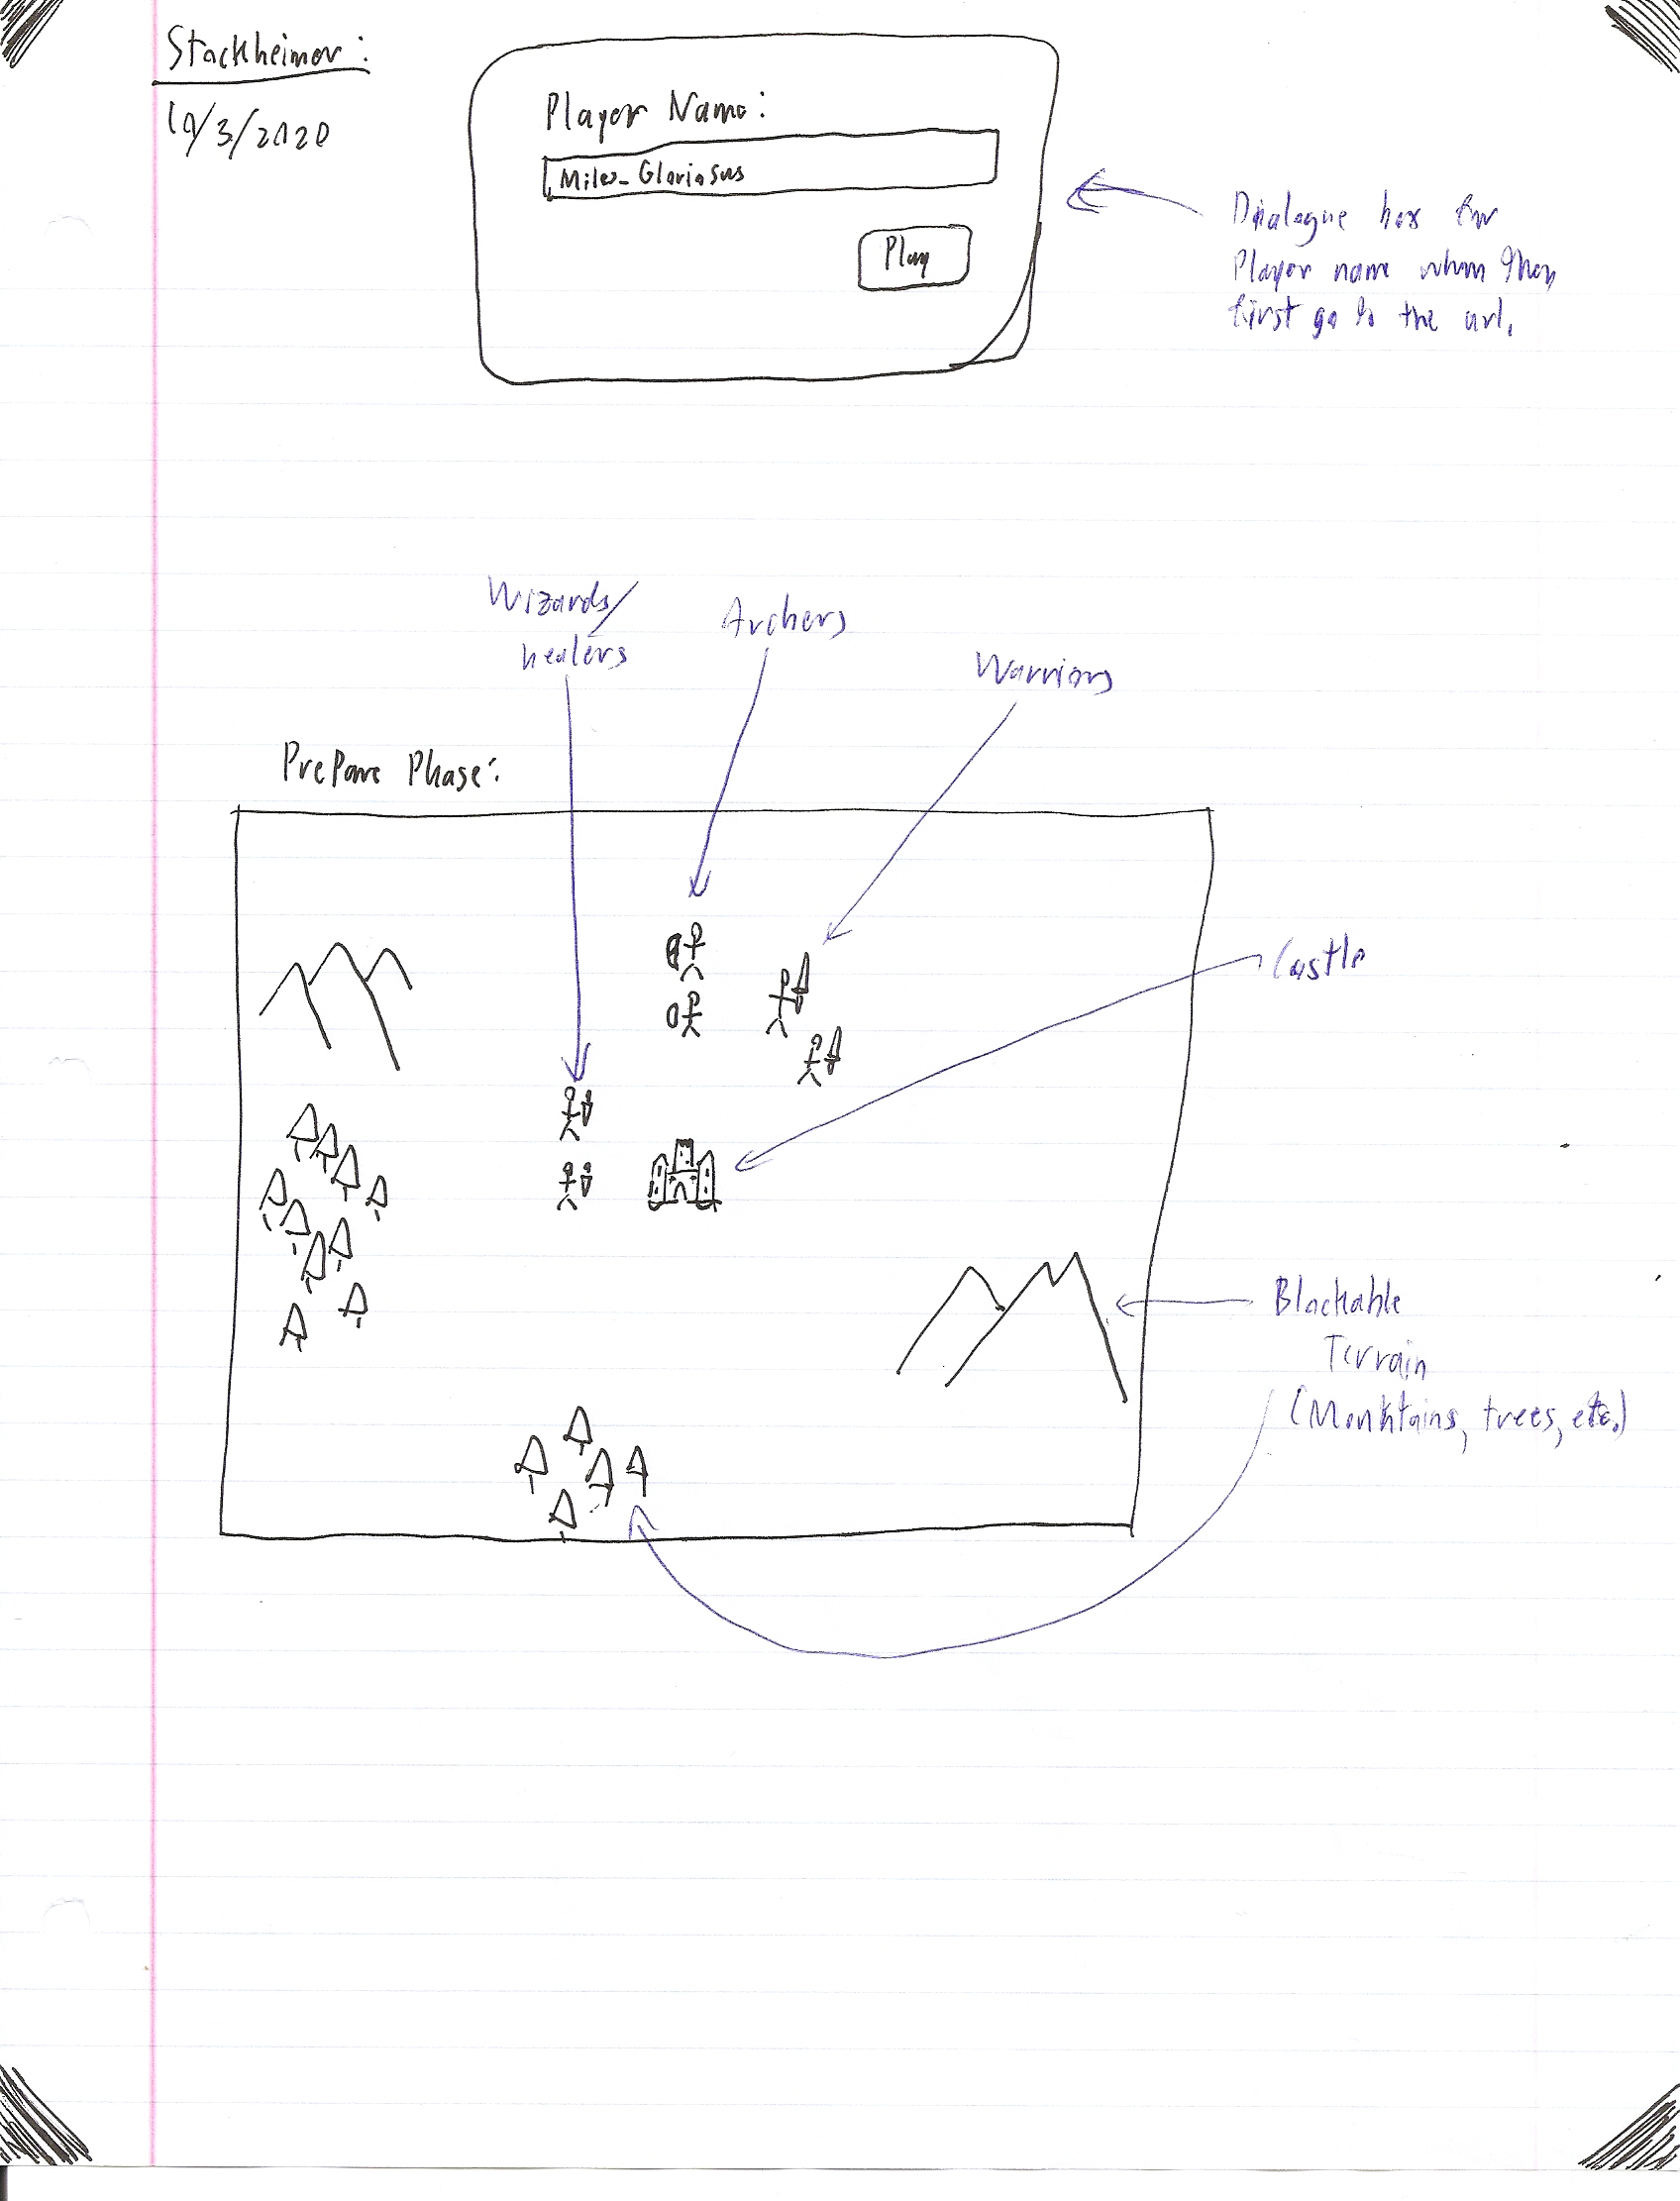 Stackheimer:
10/3/2020
Player Name:
Miles_Gloriosus
Play
Dialogue box for
Player name when they
first go to the url.
Wizards/
healers
Archers
Warriors
Prepare Phase:
Castle
Blockable
Terrain
(Mountains, trees, etc.)